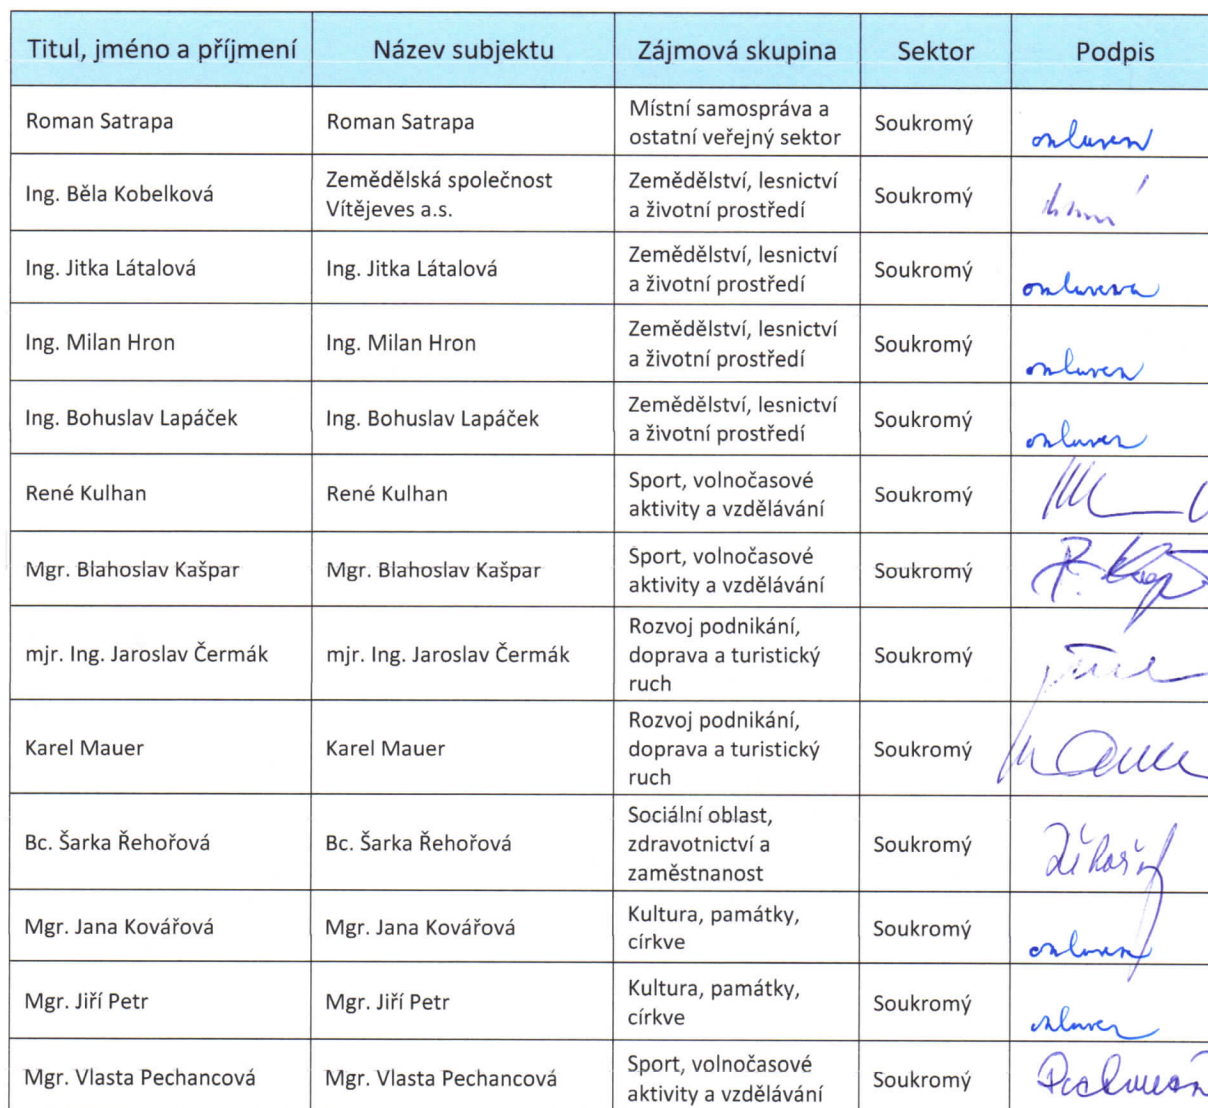 Titul, jméno a příjmení Název subjektu Zájmová skupina Sektor Podpis
Roman Satrapa Roman Satrapa Místní samospráva a
ostatní veřejný sektor Soukromý omluven
Ing. Běla Kobelková Zemědělská společnost
Vítějeves a.s. Zemědělství, lesnictví
a životní prostředí Soukromý
Ing. Jitka Látalová Ing. Jitka Látalová Zemědělství, lesnictví
a životní prostředí Soukromý omluvena
Ing. Milan Hron Ing. Milan Hron Zemědělství, lesnictví
a životní prostředí Soukromý omluven
Ing. Bohuslav Lapáček Ing. Bohuslav Lapáček Zemědělství, lesnictví
a životní prostředí Soukromý omluven
René Kulhan René Kulhan Sport, volnočasové
aktivity a vzdělávání Soukromý
Mgr. Blahoslav Kašpar Mgr. Blahoslav Kašpar Sport, volnočasové
aktivity a vzdělávání Soukromý
mjr. Ing. Jaroslav Čermák mjr. Ing. Jaroslav Čermák Rozvoj podnikání,
doprava a turistický
ruch Soukromý
Karel Mauer Karel Mauer Rozvoj podnikání,
doprava a turistický
ruch Soukromý
Bc. Šarka Řehořová Bc. Šarka Řehořová Sociální oblast,
zdravotnictví a
zaměstnanost Soukromý
Mgr. Jana Kovářová Mgr. Jana Kovářová Kultura, památky,
církve Soukromý omluvena
Mgr. Jiří Petr Mgr. Jiří Petr Kultura, památky,
církve Soukromý omluven
Mgr. Vlasta Pechancová Mgr. Vlasta Pechancová Sport, volnočasové
aktivity a vzdělávání Soukromý